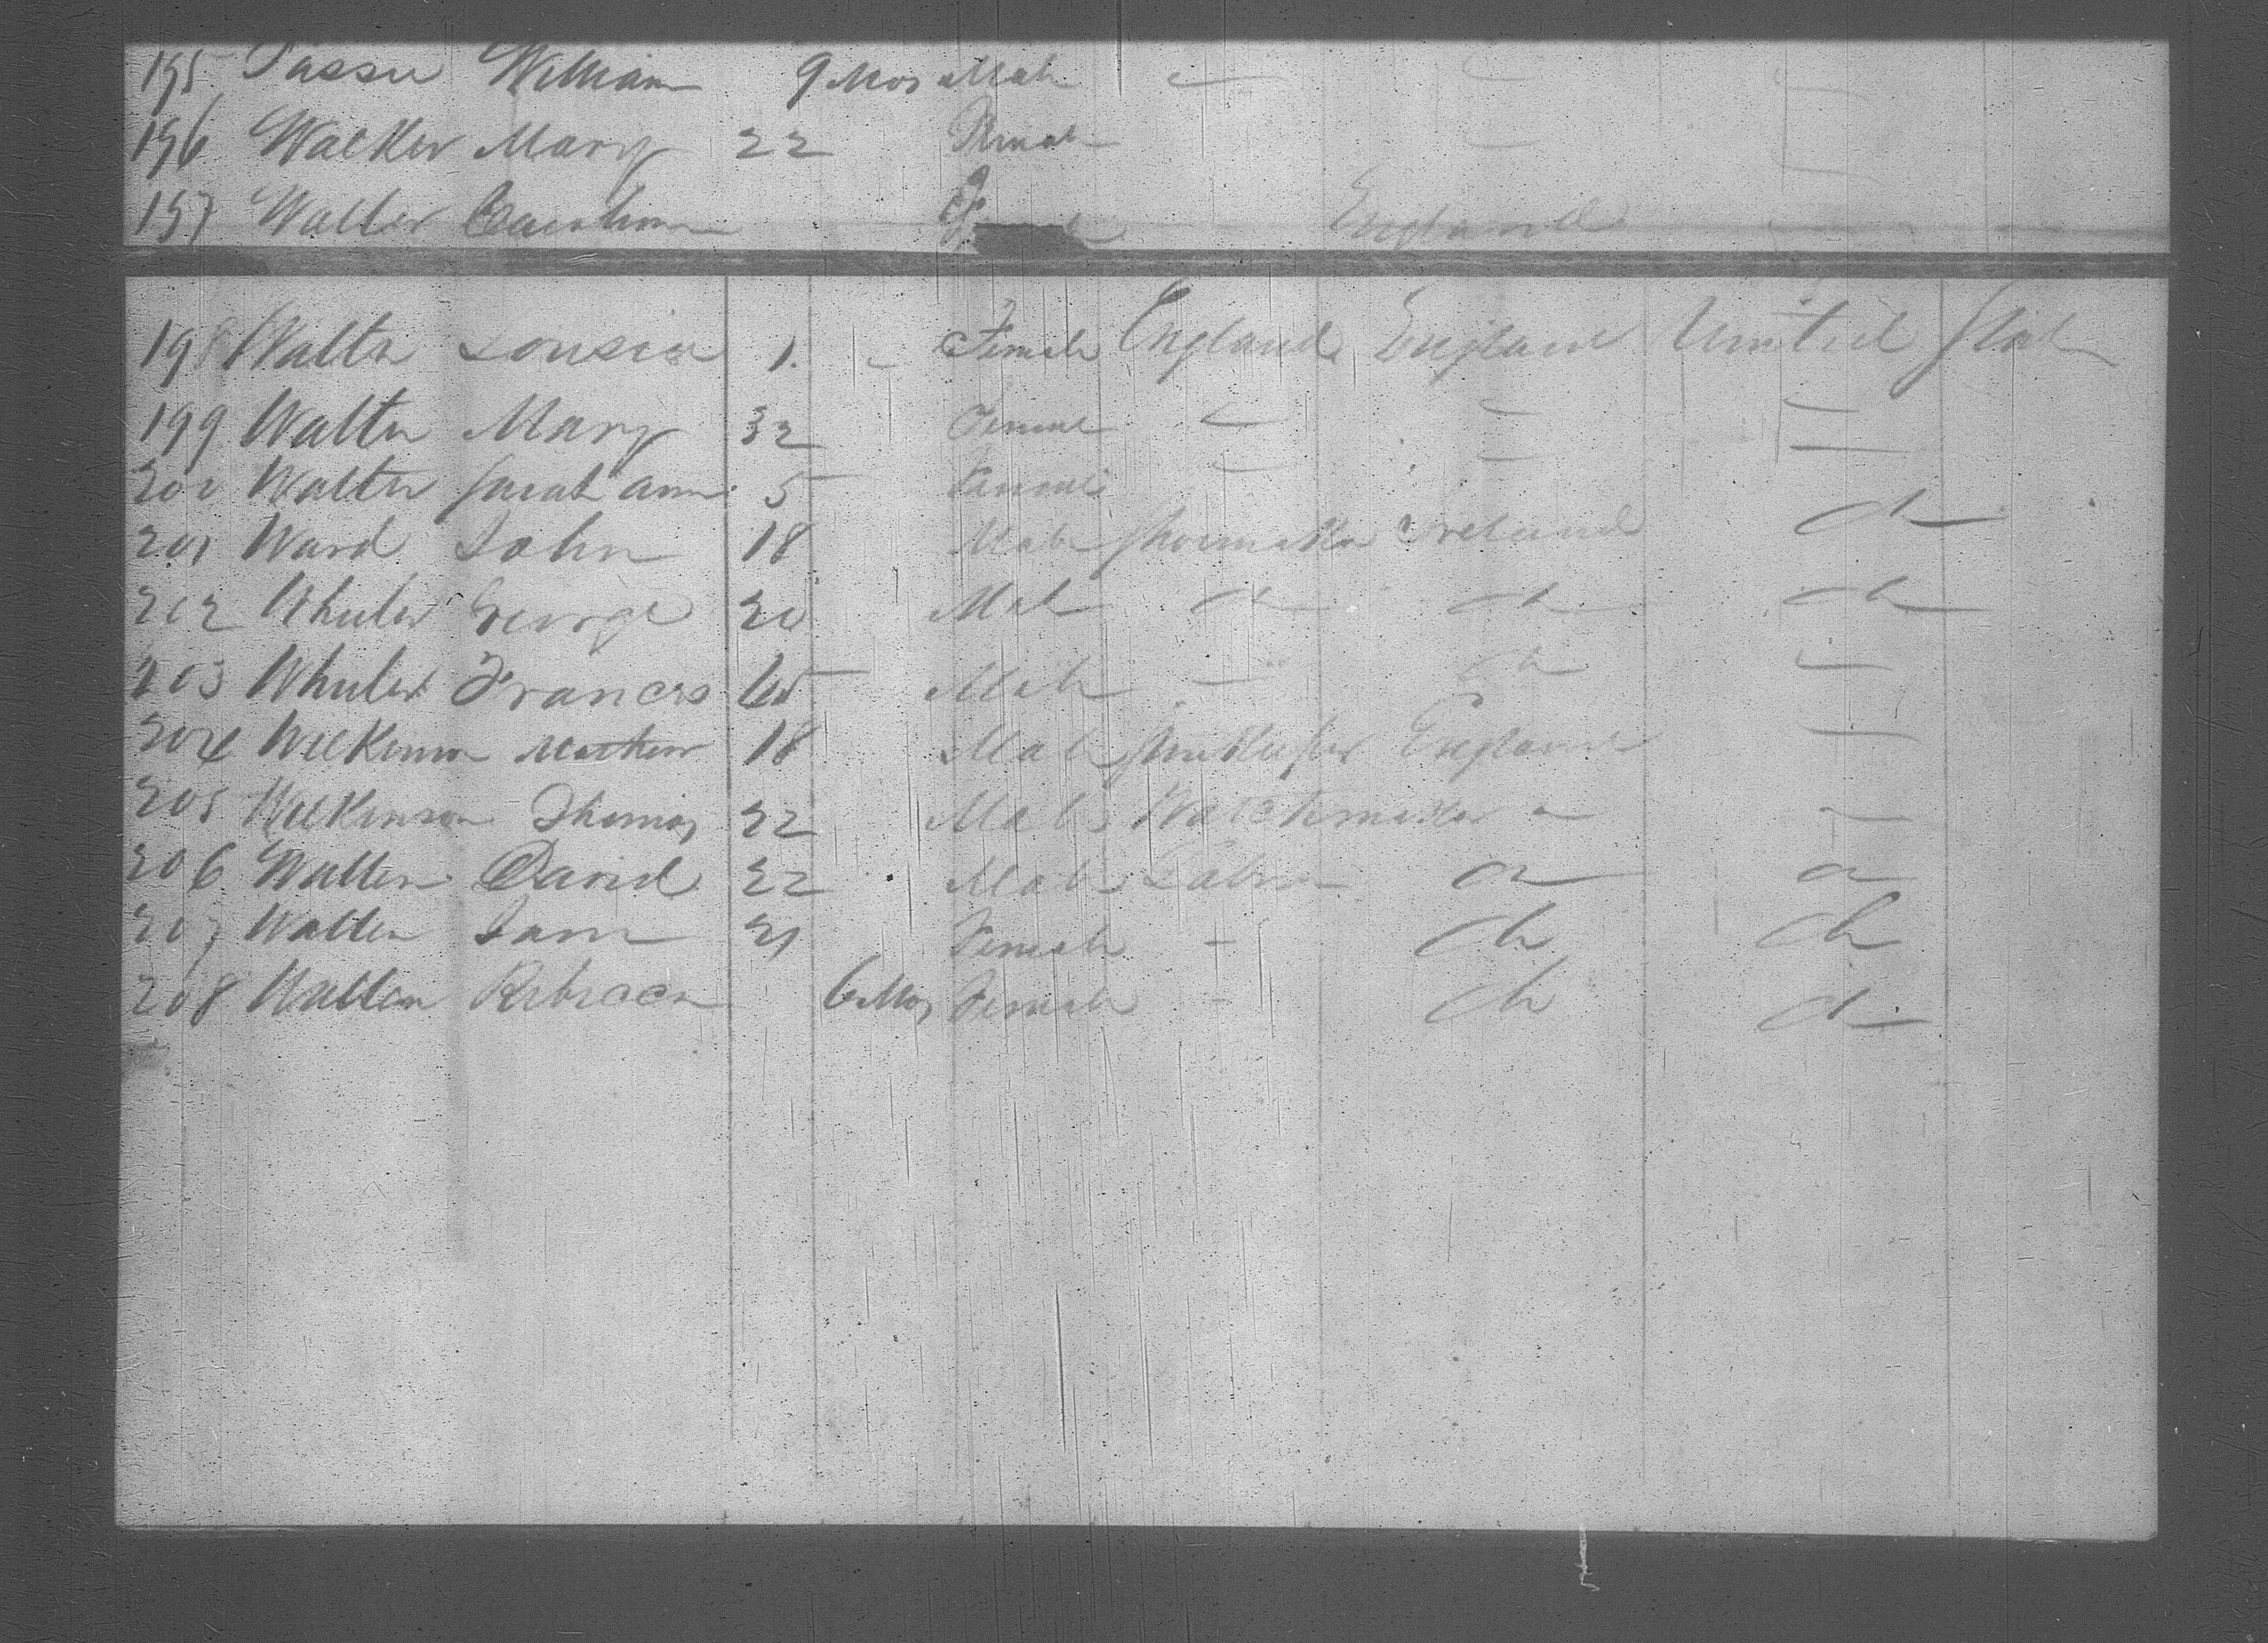 195 Tassie William 9 Mos Male
196 Walker Mary 22 Female
197 Walter Caroline Female England
198 Walter Lousia 1 Female England England United Stat
199 Walter Mary 32 Female
200 Walter Sarah ann 5 Female
201 Ward John 18 Male Shoemaker Ireland do
202 Wheeler George 20 Male do do do
203 Wheeler Francis Male do
204 Wilkinson Mathew 18 Male England
205 Wilkinson Thomas 22 Male Watchmaker
206 Walter David 22 Male Labor
207 Walter Jane 21 Female - do do
208 Walter Rebecca 6 Mos Female - do do